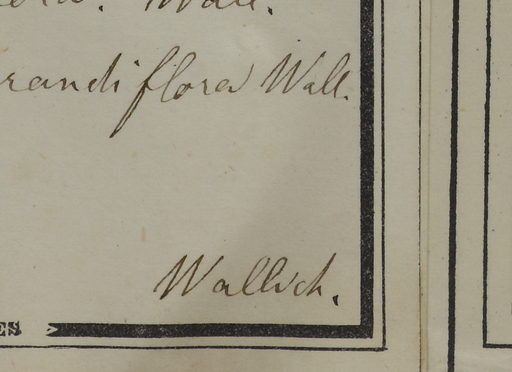 Wall.
randiflora Wall.
Wallich.
ES